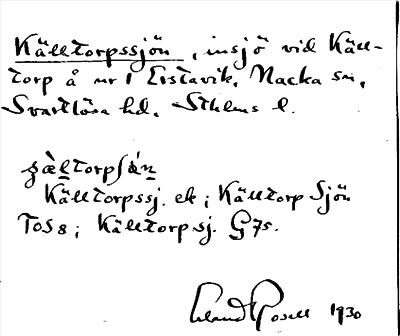 Källtorpssjön, insjö vid Käll-
torp å nr 1 Erstavik, Nacka sn,
Svartlösa hd, Sthlms l.
Källtorpssj. ek; Källtorp Sjön
TO58; Källtorpsj. G75.
Erland Rosell 1930